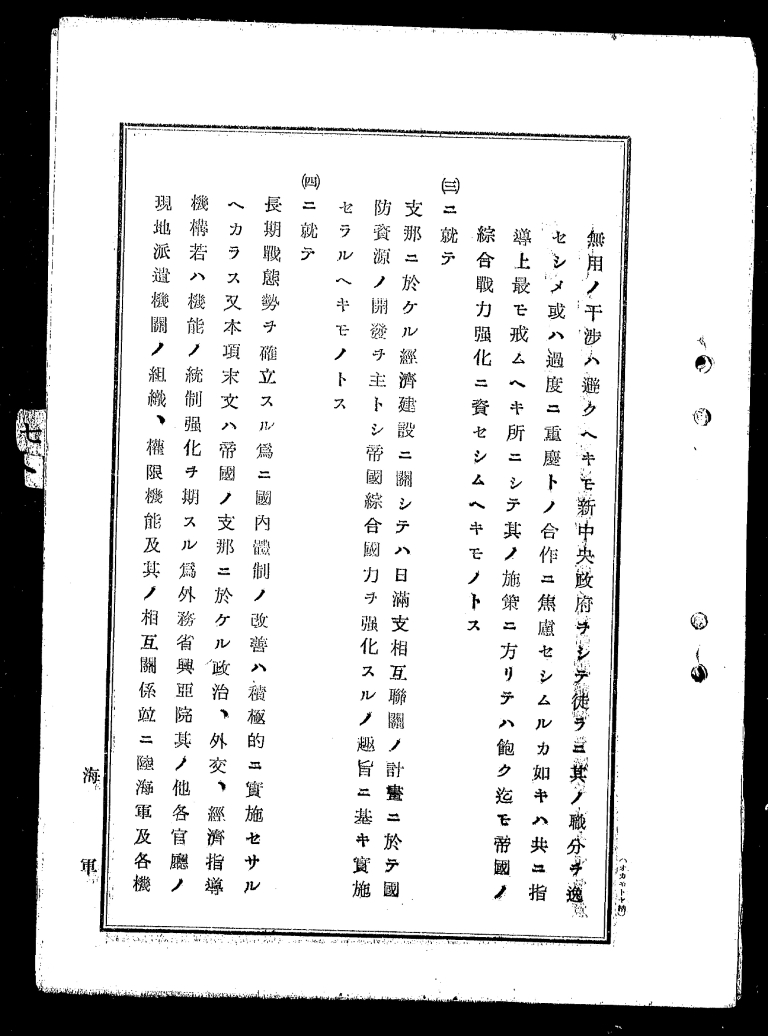 無用ノ干渉ハ避クヘキモ新中央政府ヲシテ徒ラニ其ノ職分ヲ逸
セシメ或ハ過度ニ重慶トノ合作ニ焦慮セシムルカ如キハ共ニ指
導上最モ戒ムヘキ所ニシテ其ノ施策ニ方リテハ飽ク迄モ帝國ノ
綜合戰力强化ニ資セシムヘキモノトス
㈢ニ就テ
支那ニ於ケル經濟建設ニ關シテハ日滿支相互聯關ノ計畫ニ於テ國
防資源ノ開發ヲ主トシ帝國綜合國力ヲ强化スルノ趣旨ニ基キ實施
セラルヘキモノトス
㈣ニ就テ
長期戰態勢ヲ確立スル爲ニ國內體制ノ改善ハ積極的ニ實施セサル
ヘカラス又本項末文ハ帝國ノ支那ニ於ケル政治、外交、經濟指導
機構若ハ機能ノ統制强化ヲ期スル爲外務省興亞院其ノ他各官廳ノ
現地派遣機關ノ組織、權限機能及其ノ相互關係竝ニ陸海軍及各機
海軍
(オカモトヤ納)
七